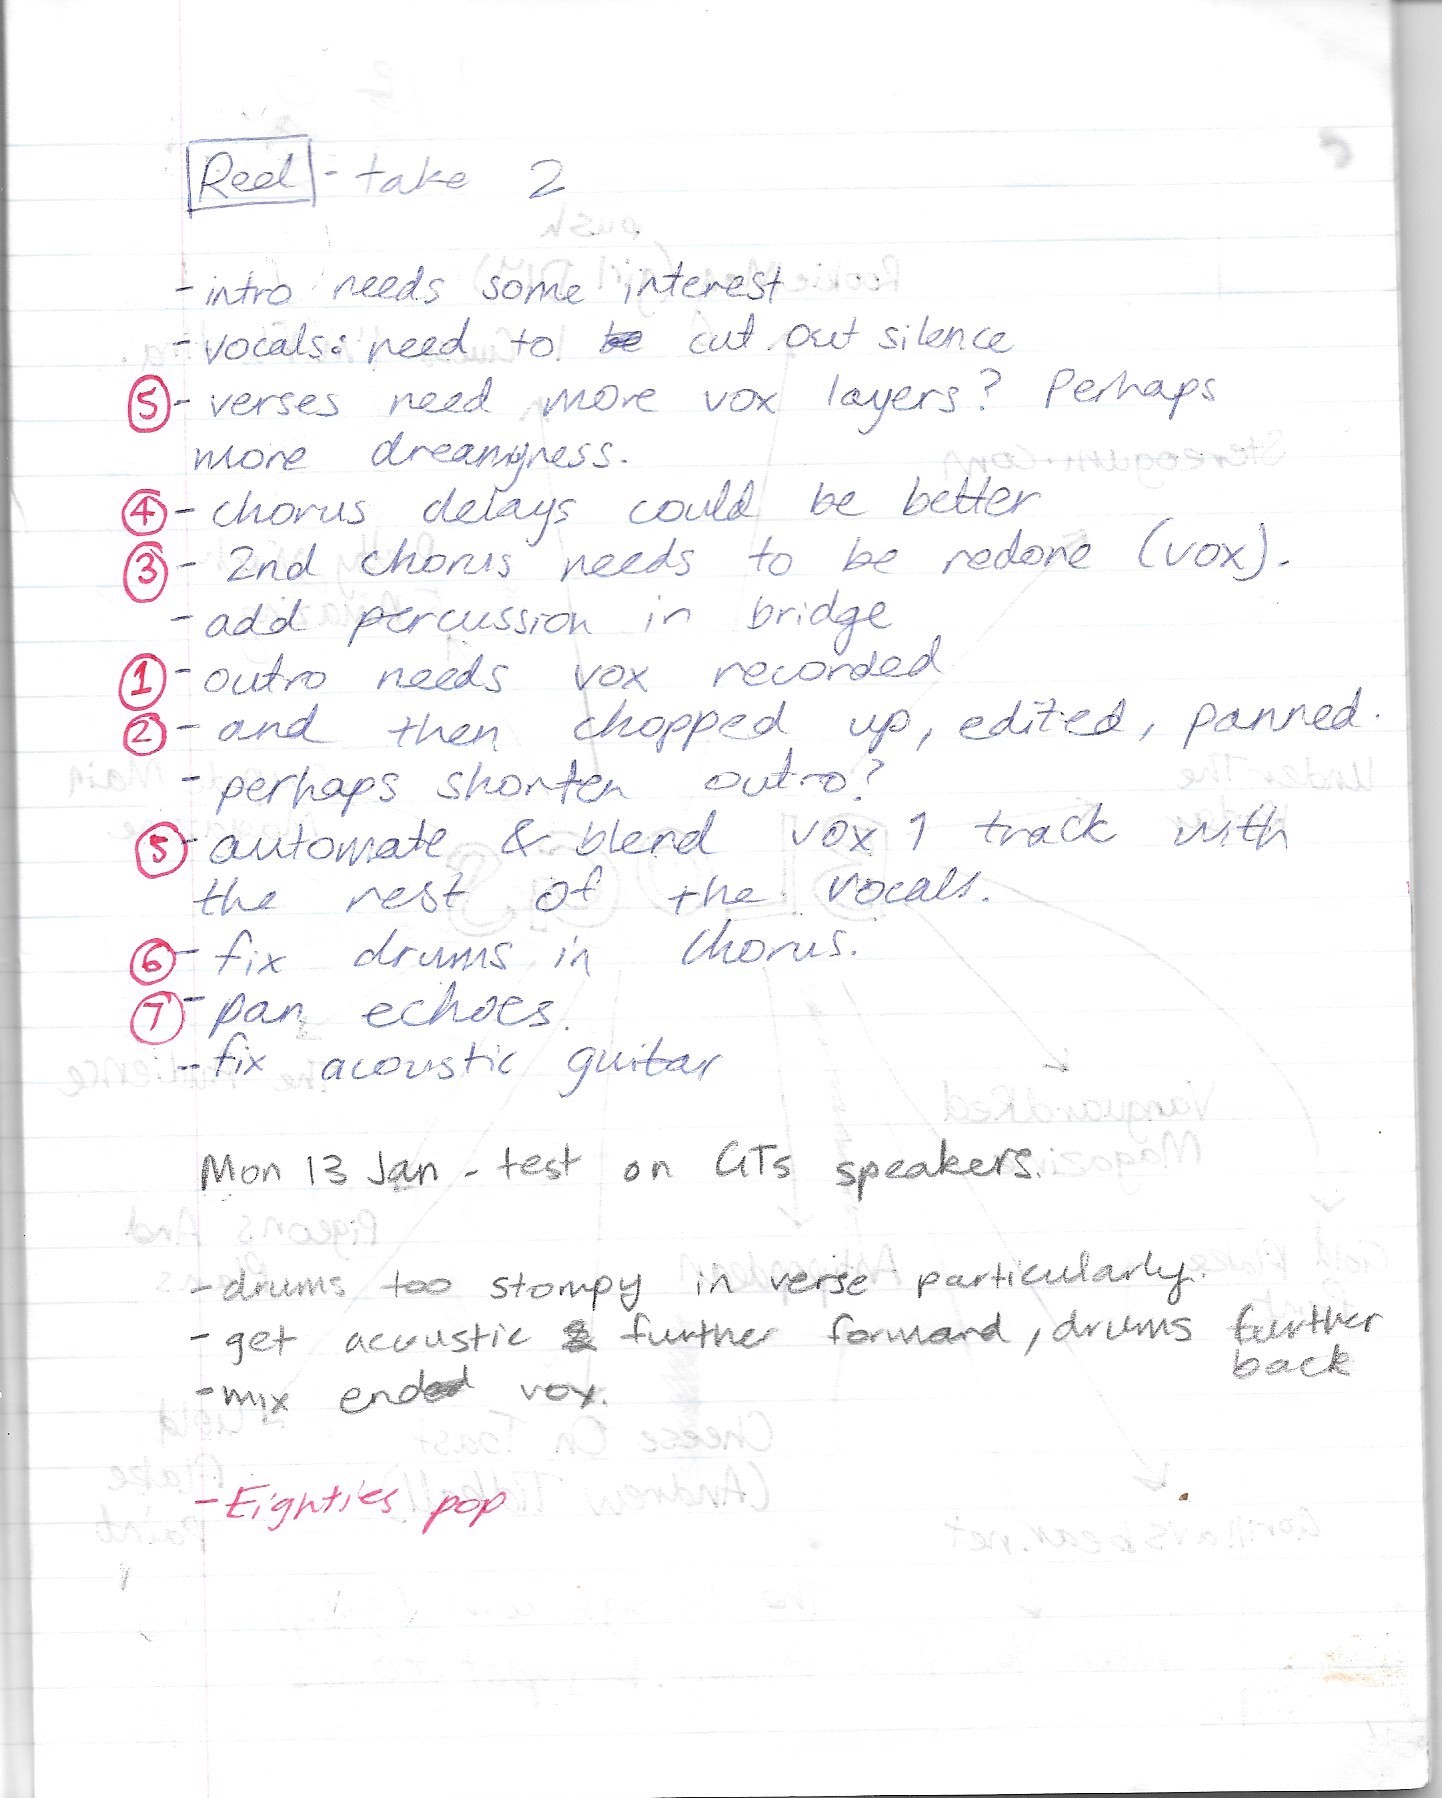 Reel - take 2
- intro needs some interest
- vocals: need to be cut out silence
⑤ - verses need more vox layers? Perhaps
more dreamyness.
④ - chorus delays could be better
③ - 2nd chorus needs to be redone (vox).
- add percussion in bridge
① - outro needs vox recorded
② - and then chopped up, edited, panned.
- perhaps shorten outro?
⑤ - automate & blend vox 1 track with
the rest of the vocals.
⑥ - fix drums in chorus.
⑦ - pan echoes.
- fix acoustic guitar
Mon 13 Jan - test on GTs speakers.
- drums too stompy in verse particularly.
- get acoustic further forward, drums further
back
- mix end vox.
- Eighties pop